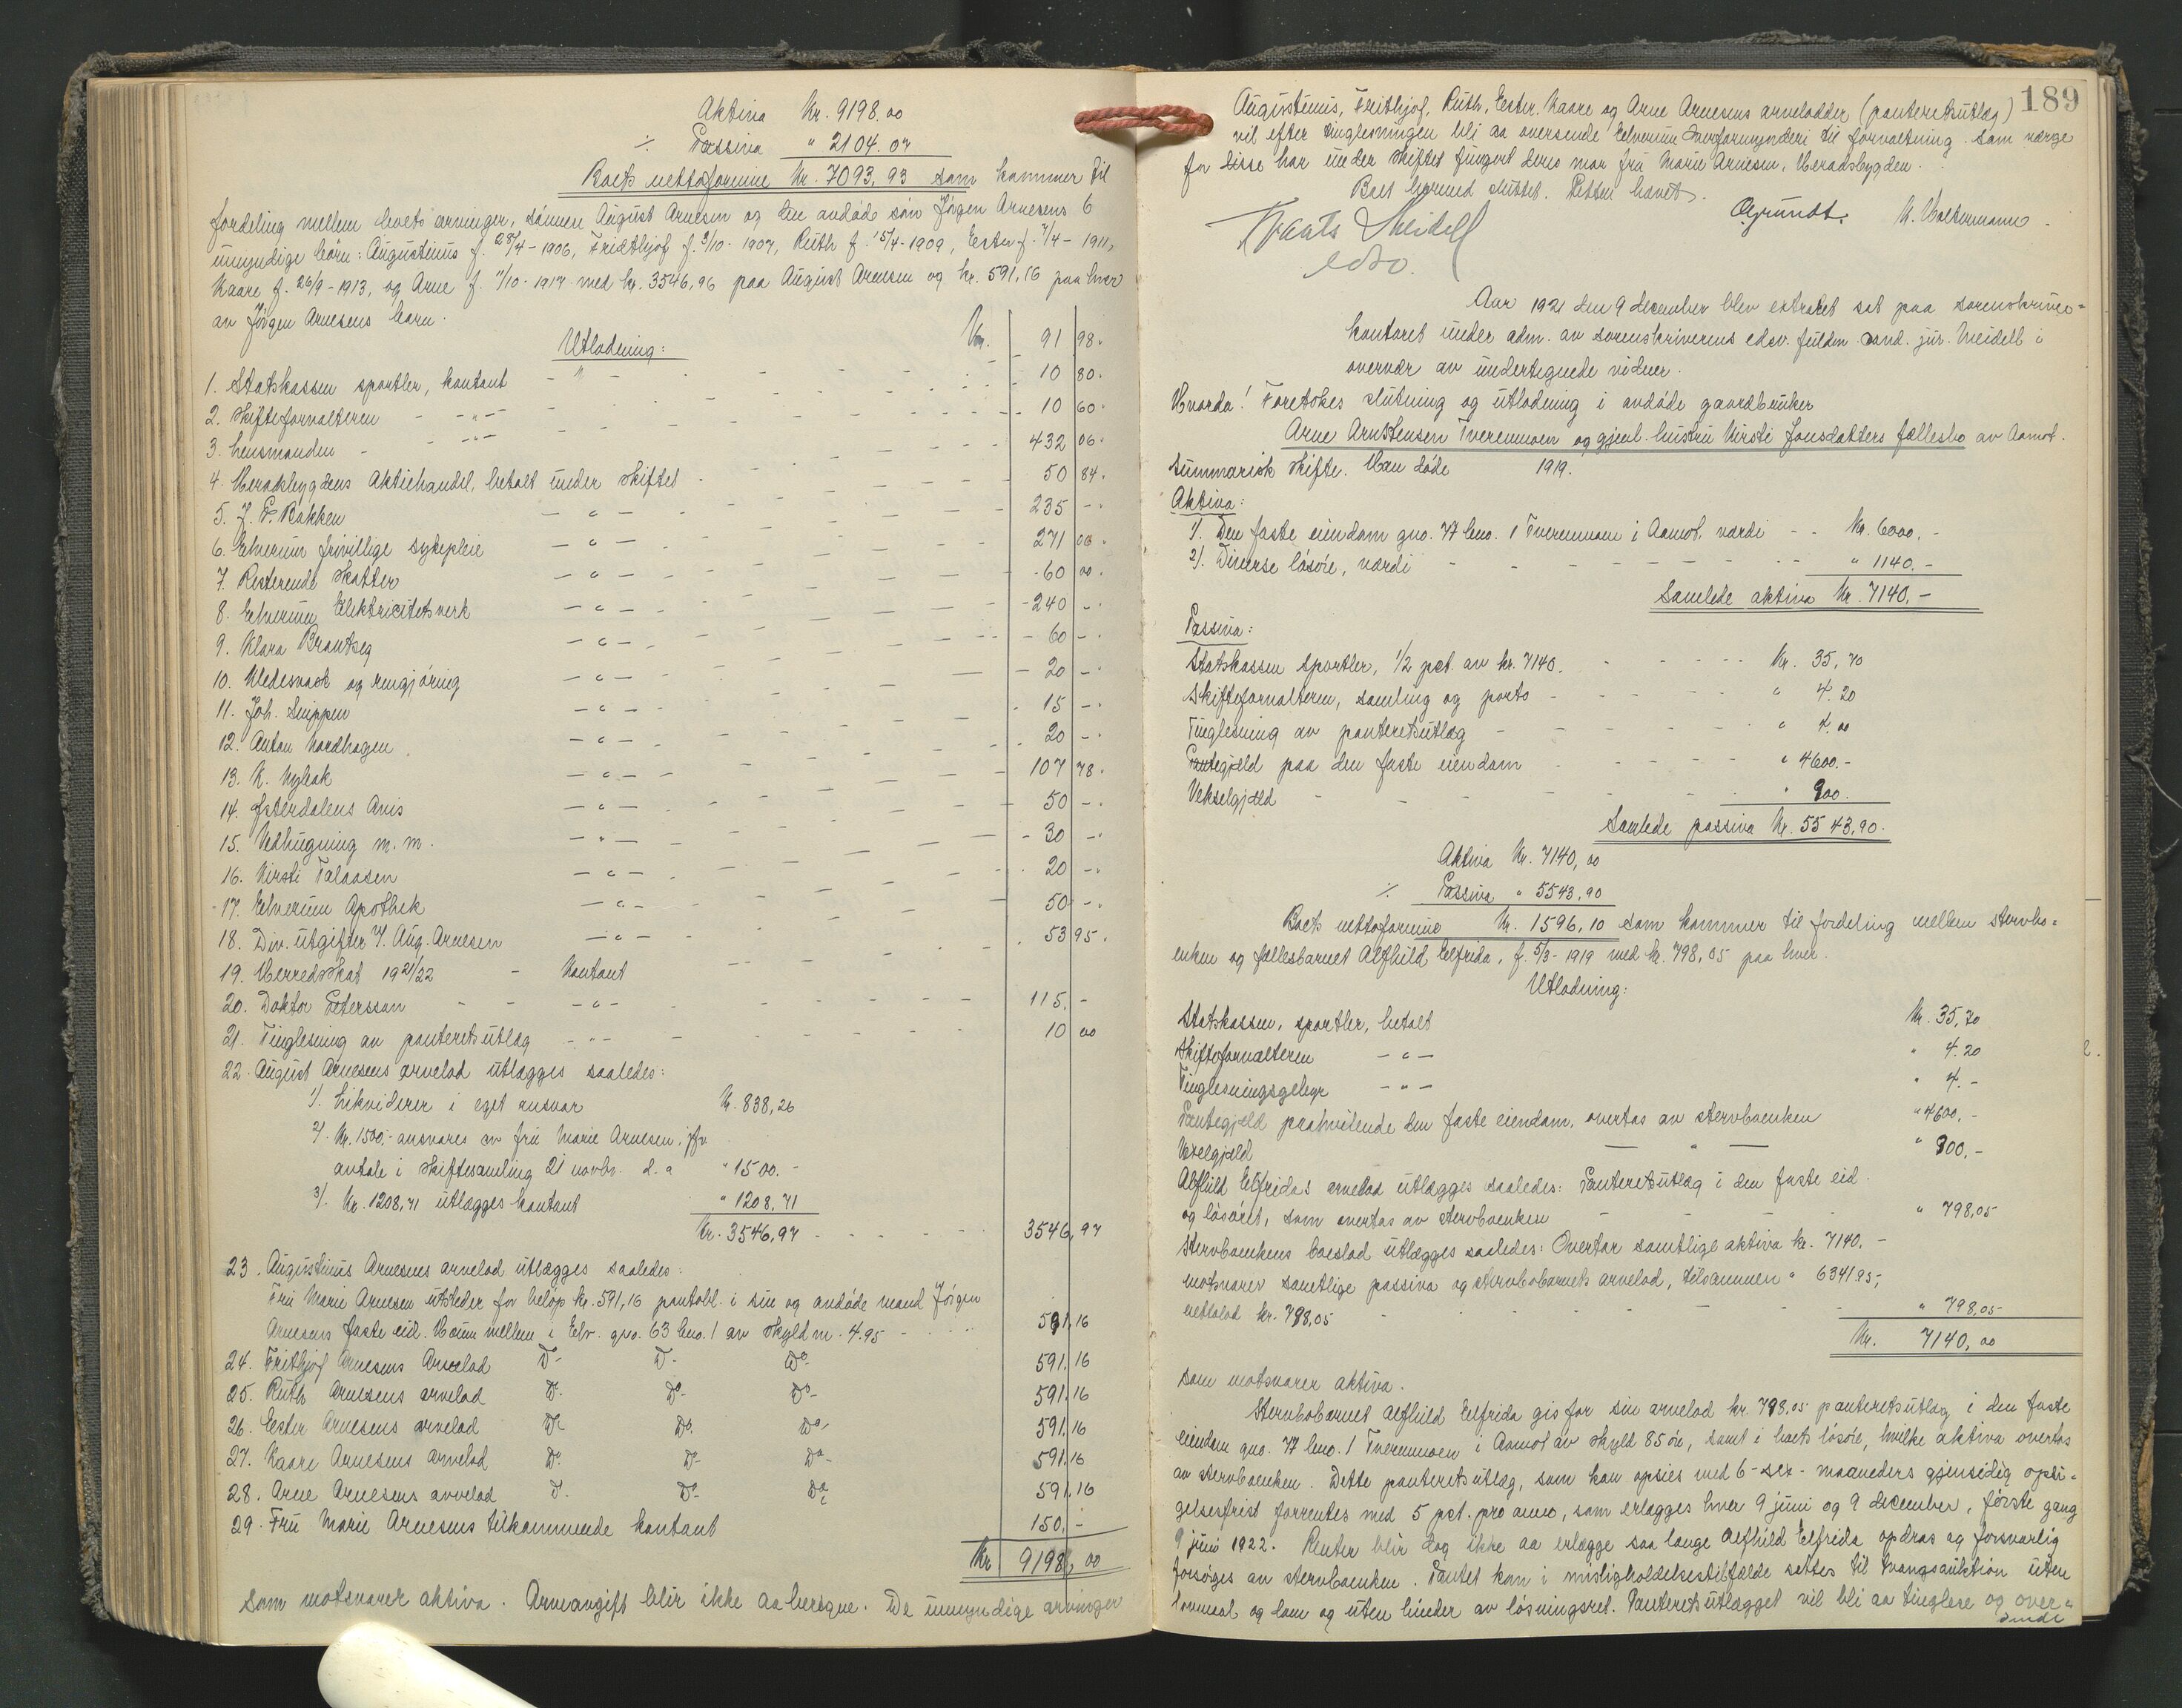 Aktiva Kr. 9198.00
÷ Passiva " 2104.07
Boets nettoformue Kr. 7093,93 som kommer til
fordeling mellem boets arvinger, sönnen August Arnesen og den avdöde sön Jörgen Arnesens 6
umyndige börn: Augustinus f. 28/4-1906, Fridthjof f. 9/10-1907, Ruth f. 15/4-1909, Ester f. 7/4-1911,
Kaare f. 26/9-1913, og Arne f. 11/10-1917 med kr. 3546,96 paa August Arnesen og kr. 591,16 paa hver
av Jörgen Arnesens barn.
Utlodning:
1. Statskassen sportler, kontant Kr. 91 98.
2. Skifteforvalteren - " - 10 80.
3. Lensmanden - " - 10 60.
4. Heradsbygdens Aktiehandel, betalt under skiftet 432 06.
5. J. F. Bakken - " - 50 84.
6. Elverum frivillige sykepleie - " - 235 -.
7. Resterende skatter - " - 271 06.
8. Elverum Elektricitetsverk - " - 60 00.
9. Klara - " - 240 -.
10. Klædesvask og rengjöring - " - 60 -.
11. Joh. Snippen - " - 20 -.
12. Anton Nordhagen - " - 15 -.
13. K. - " - 20 -.
14. Østerdalens Avis - " - 107 78.
15. Vedhugning m.m. - " - 50 -.
16. Kirsti Talaasen - " - 30 -.
17. Elverum Apothek - " - 20 -.
18. Div. utgifter t. Aug. Arnesen - " - 50 -.
19. Herredsskat 1921/22 - Kontant 53 95.
20. Doktor Petersson - " - 115. -
21. Tinglesning av panteretsutlæg - " - 10 00
22. August Arnesens arvelod utlægges saaledes:
1). Likviderer i eget ansvar Kr. 838,26
2). Kr. 1500.- ansvares av fru Marie Arnesen, jfr.
avtale i skiftesamling 21 novbr. d.a " 1500.-
3). Kr. 1208,71 utlægges kontant " 1208,71
Kr. 3546,97 - - - - 3546,97
23. Augustinus Arnesens arvelod utlægges saaledes:
Fru Marie Arnesen utsteder for belöp kr. 591,16 pantobl. i sin og avdöde mand Jörgen
Arnesens faste eid. Houm mellem i Elv. gno. 63 bno. 1 av skyld m. 4.95 - 591,16
24. Frithjof Arnesens Arvelod Do- Do- Do- 591.16
25. Ruth Arnesens arvelod Do- Do- Do- 591.16
26. Ester Arnesens arvelod Do- Do- Do- 591.16
27. Kaare Arnesens arvelod Do- Do- Do- 591.16
28. Arne Arnesens arvelod Do- Do- Do- 591.16
29. Fru Marie Arnesens tilkommende kontant 150.-
Kr. 9198,00
Som motsvarer aktiva. Arveavgift blir ikke aa beregne. De umyndige arvinger
189
Augustinus, Frithjof, Ruth, Ester, Kaare og Arne Arnesens arvelodder (panteretsutlæg)
vil efter tinglesningen bli aa oversende Elverum Overformynderi til forvaltning. Som værge
for disse har under skiftet fungert deres mor fru Marie Arnesen, Heradsbygden.
Boet hermed sluttet. Retten hævet.
Meidell
edsv.
OGrundt. K. Woltermann.
Aar 1921 den 9 december blev extraret sat paa sorenskriver=
kontoret under adm. av sorenskriverens edsv. fuldm. cand. jur. Meidell i
overvær av undertegnede vidner.
Hvorda! Foretokes slutning og utlodning i avdöde gaardbruker
Arne Arnstensen Tverrmoen og gjenl. hustru Kirsti Jonsdatters fællesbo av Aamot.
Summarisk skifte. Man döde 1919.
Aktiva:
1). Den faste eiendom gno. 77 bno. 1 Tverrmoen i Aamot, værdi - - Kr. 6000.-
2). Diverse lösöre, værdi " 1140.-
Samlede aktiva Kr. 7140.-
Passiva:
Statskassen sportler, 1/2 pct. av kr. 7140. Kr. 35,70
Skifteforvalteren, samling og porto - " 4.20
Tinglesning av panteretsutlæg - " 4.00
Pantegjæld paa den faste eiendom " 4600.-
Vekselgjæld - " 900.
Samlede passiva Kr. 5543,90.
Aktiva Kr. 7140,00
÷ Passiva " 5543,90
Boets nettoformue Kr. 1596,10 som kommer til fordeling mellem stervbo=
enken og fællesbarnet Alfhild Elfrida, f. 5/3-1919 med kr. 798,05 paa hver.
Utlodning:
Statskassen, sportler, betalt Kr. 35,70
Skifteforvalteren - " - " 4.20
Tinglesningsgebyr - " - " 4.-
Pantegjæld paahvilende den faste eiendom, overtas av stervboenken " 4600.-
Vexelgjæld — " — " 900.-
Alfhild Elfridas arvelod utlægges saaledes: Panteretsutlæg i den faste eid.
og lösöret, som overtas av stervboenken " 798,05
Stervboenkens boeslod utlægges saaledes: Overtar samtlige aktiva kr. 7140.-
motsvarer samtlige passiva og stervbobarnets arvelod, tilsammen " 6341.95,
nettolod kr. 798,05 - " 798,05
Kr. 7140,00
som motsvarer aktiva.
Stervbobarnet Alfhild Elfrida gis for sin arvelod kr. 798.05 panteretsutlæg i den faste
eiendom gno. 77 bno. 1 Tverrmoen i Aamot av skyld 85 öre, samt i boets lösöre, hvilke aktiva overtas
av stervboenken. Dette panteretsutlæg, som kan opsies med 6-sex-maaneders gjensidig opsi=
gelsesfrist forrentes med 5 pct. pro anno, som erlægges hver 9 juni og 9 december, förste gang
9 juni 1922. Renter blir dog ikke aa erlægge saa længe Alfhild Elfrida opdras og forsvarlig
forsörges av stervboenken. Pantet kan i misligholdelsestilfælde sættes til tvangsauktion uten
lovmaal og dom og uten hinder av lösningsret. Panteretsutlægget vil bli aa tinglese og over=
sende